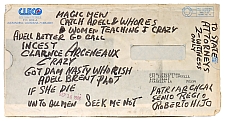 CLECO
MAGIC MEN
CATCH ADELL & WHORES
& WOMEN TEACHING & CRAZY
ADELL BETTER GO CALL
INCEST
CLARICE ARCENEAUX
CRAZY
GOT DAM NASTY WHORISH
ADELL BRENT PLOT
IF SHE DIE
UNTO BLLMEN SEEK ME NOT
TO STATE
ATTORNEYS
ONLY
PATRIARCHAL
SENIO REGIS
ROBERTO HIJO